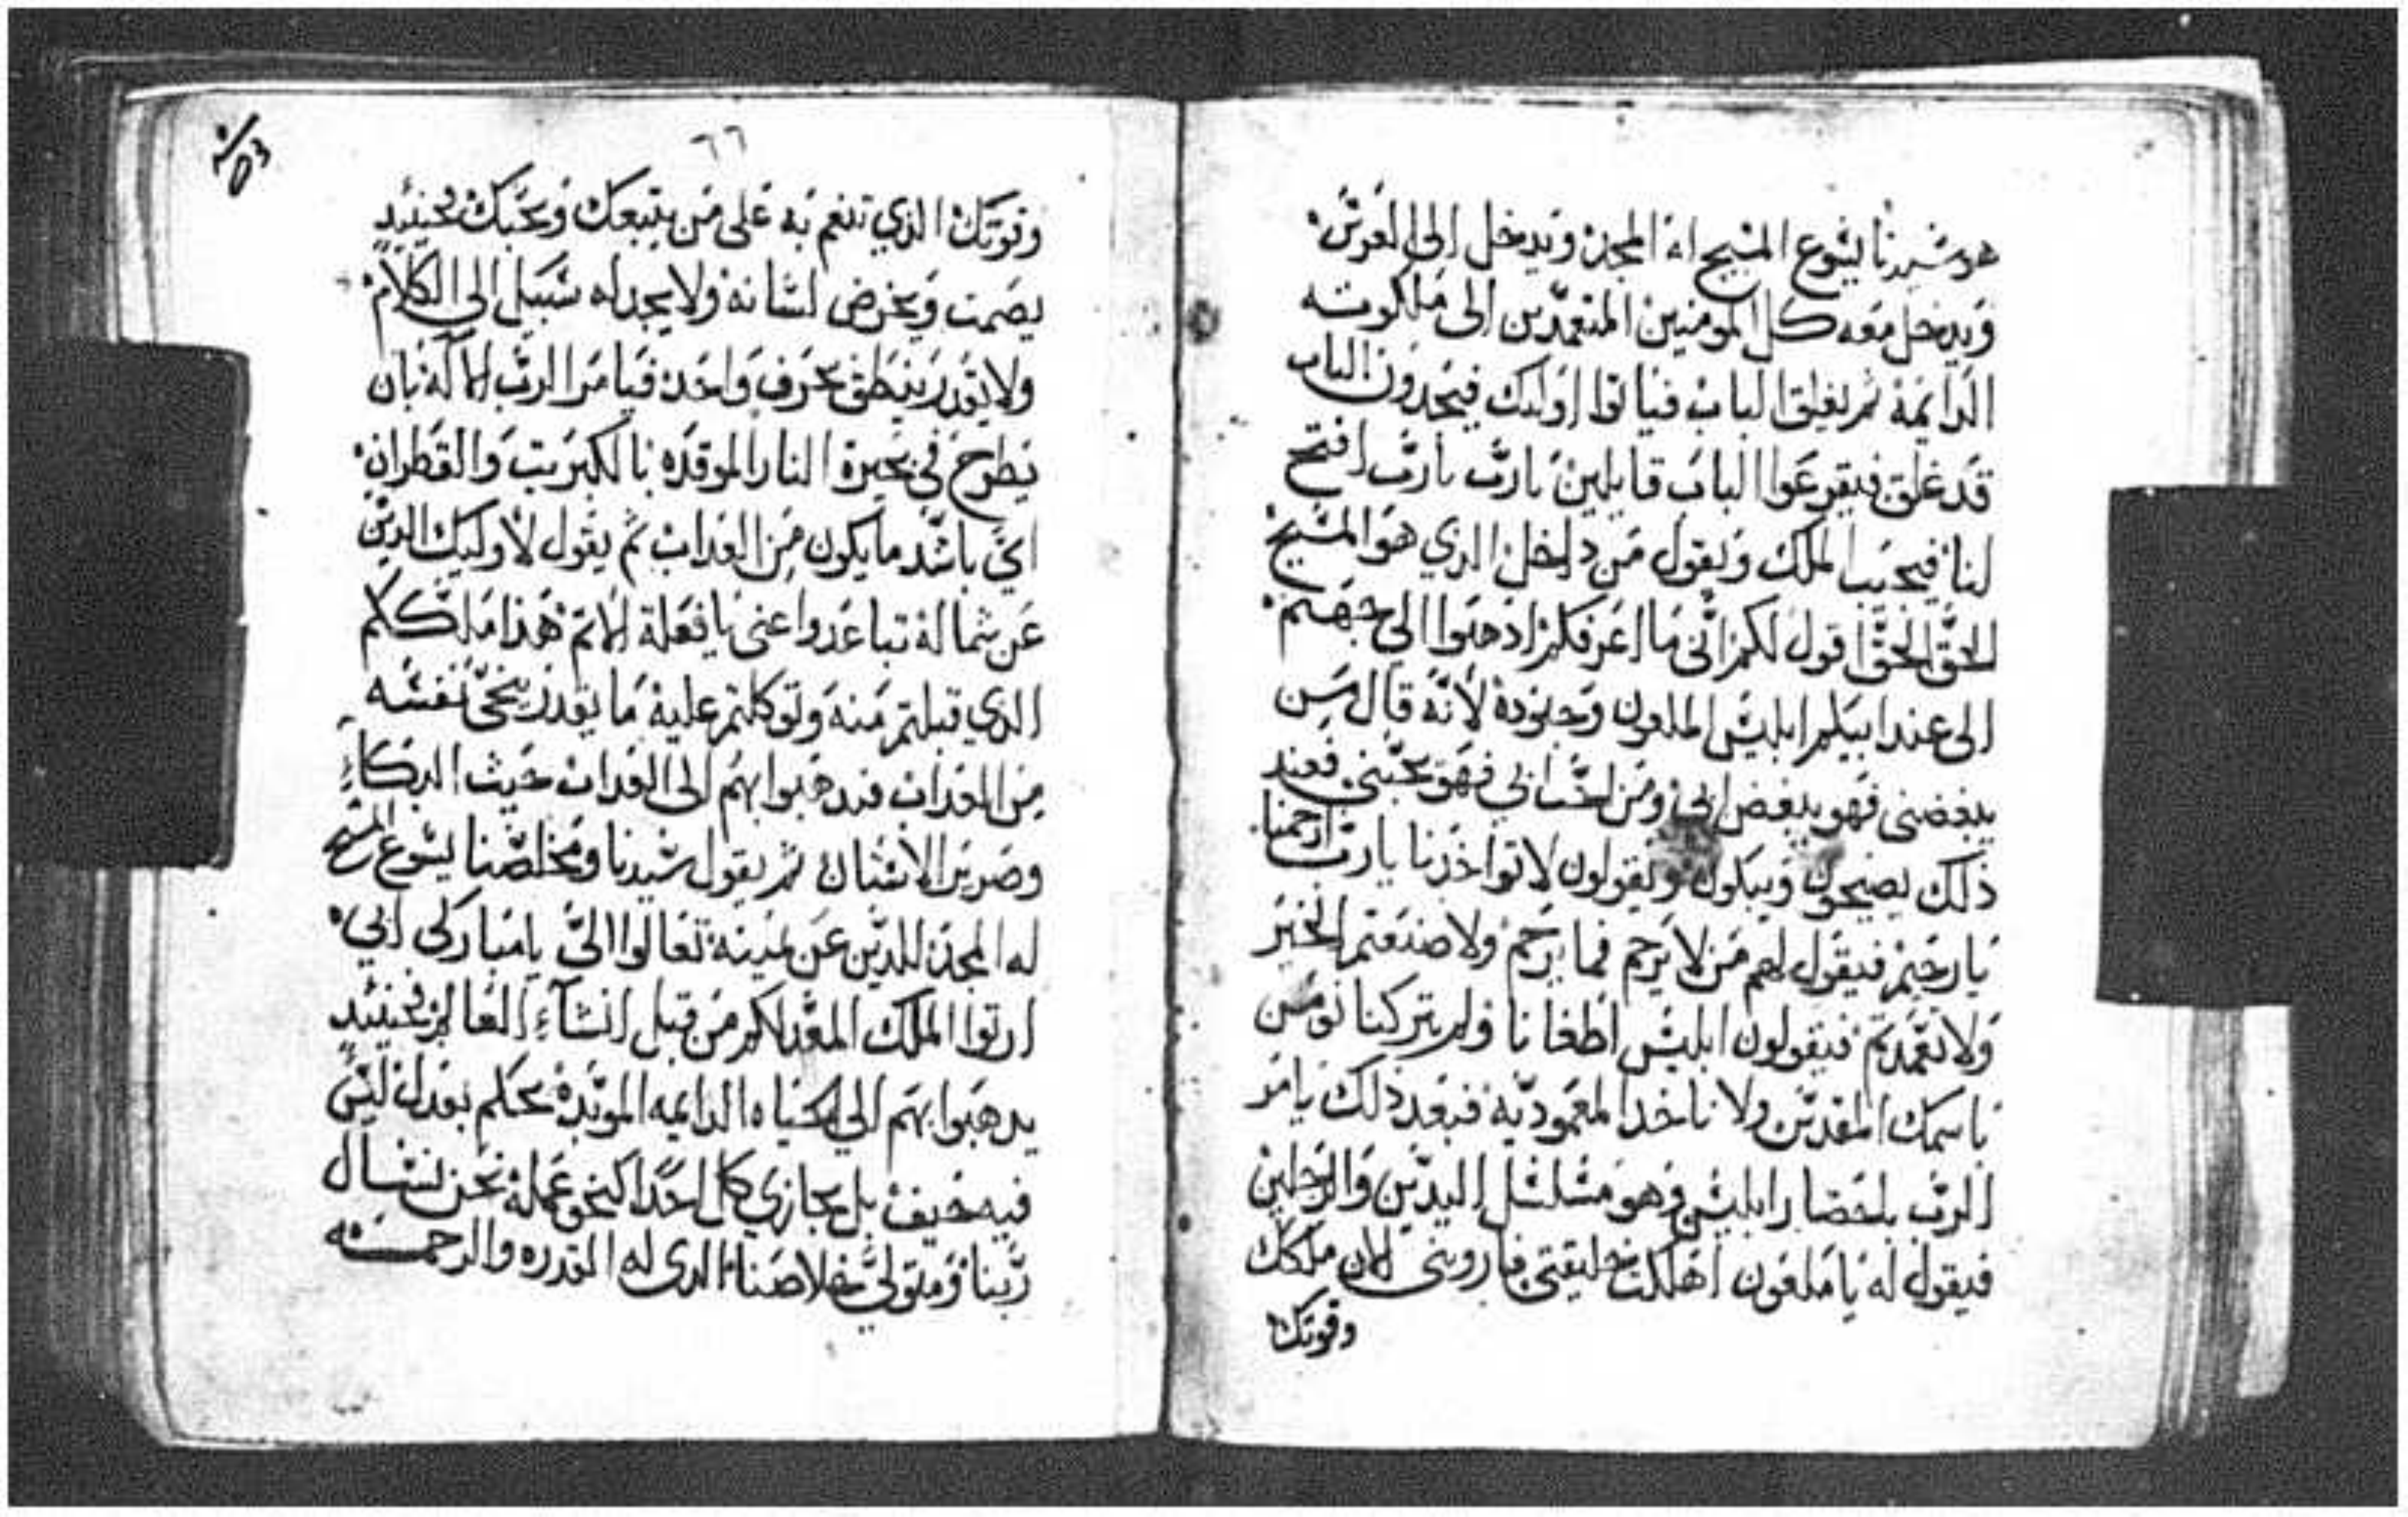 هو سيدنا يسوع المسيح له المجد ويدخل الى العرس
ويدخل معه كل المومنين المتعمدين الى ملكوته
الدايمة ثم يغلق الباب فياتوا اوليك فيجدون الباب
قد غلق فيقرعوا الباب قايلين يارب يارب افتح
لنا فيجيب الملك ويقول من داخل الذي هو المسيح
الحق الحق اقول لكم انى ما اعرفكم اذهبوا الى جهنم
الى عند ابيكم ابليس الملعون وجنوده لانه قال من
يبغضنى فهو يبغض ابى ومن احب ابي فهو يحبنى فعند
ذلك يصيحون ويبكون ويقولون لا تواخذنا يارب ارحمنا
يارحيم فيقول لهم من لا يرحم فما يرحم ولا صنعتم الخير
ولا تعمدتم فيقولون ابليس اطغانا ولم يتركنا نومن
باسمك المقدس ولا ناخد المعمودية فبعد ذلك يامر
الرب باحضار ابليس وهو مسلسل اليدين والرجلين
فيقول له ياملعون اهلكت خليقتى فارونى الان ملكك
وقوتك
٦٦
وقوتك الذي تنعم به على من يتبعك ويحبك فحينيد
يصمت ويخرض لسانه ولا يجد له سبيل الى الكلام
ولا يقدر ينطق بحرف واحد فيامر الرب الاله بان
يطرح في بحيرة النار الموقده بالكبريت والقطران
اي باشد ما يكون من العداب ثم يقول لاوليك الدين
عن شماله تباعدوا عنى يا فعلة الاتم هذا ملككم
الذي قبلتم منه وتوكلتم عليه ما يقدر ينجى نفسه
من العداب فيدهبوا بهم الى العداب حيث البكاء
وصرير الاسنان ثم يقول سيدنا ومخلصنا يسوع المسيح
له المجد للدين عن يمينه تعالوا الىّ يا مباركى ابي
ارثوا الملك المعد لكم من قبل انشآء العالم فحينيد
يدهبوا بهم الى الحياه الدايمه الموبدة بحكم بعدل ليس
فيه حيف بل يجازي كل احدا كنحو عمله نحن نسال
ربنا ومتولي خلاصنا الدى له القدره والرحمه